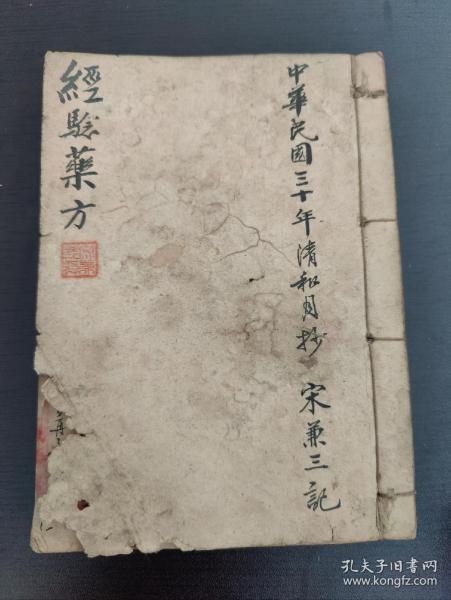 中華民國三十年清和月抄 宋兼三記
經驗藥方
孔夫子旧书网
www.kongfz.com